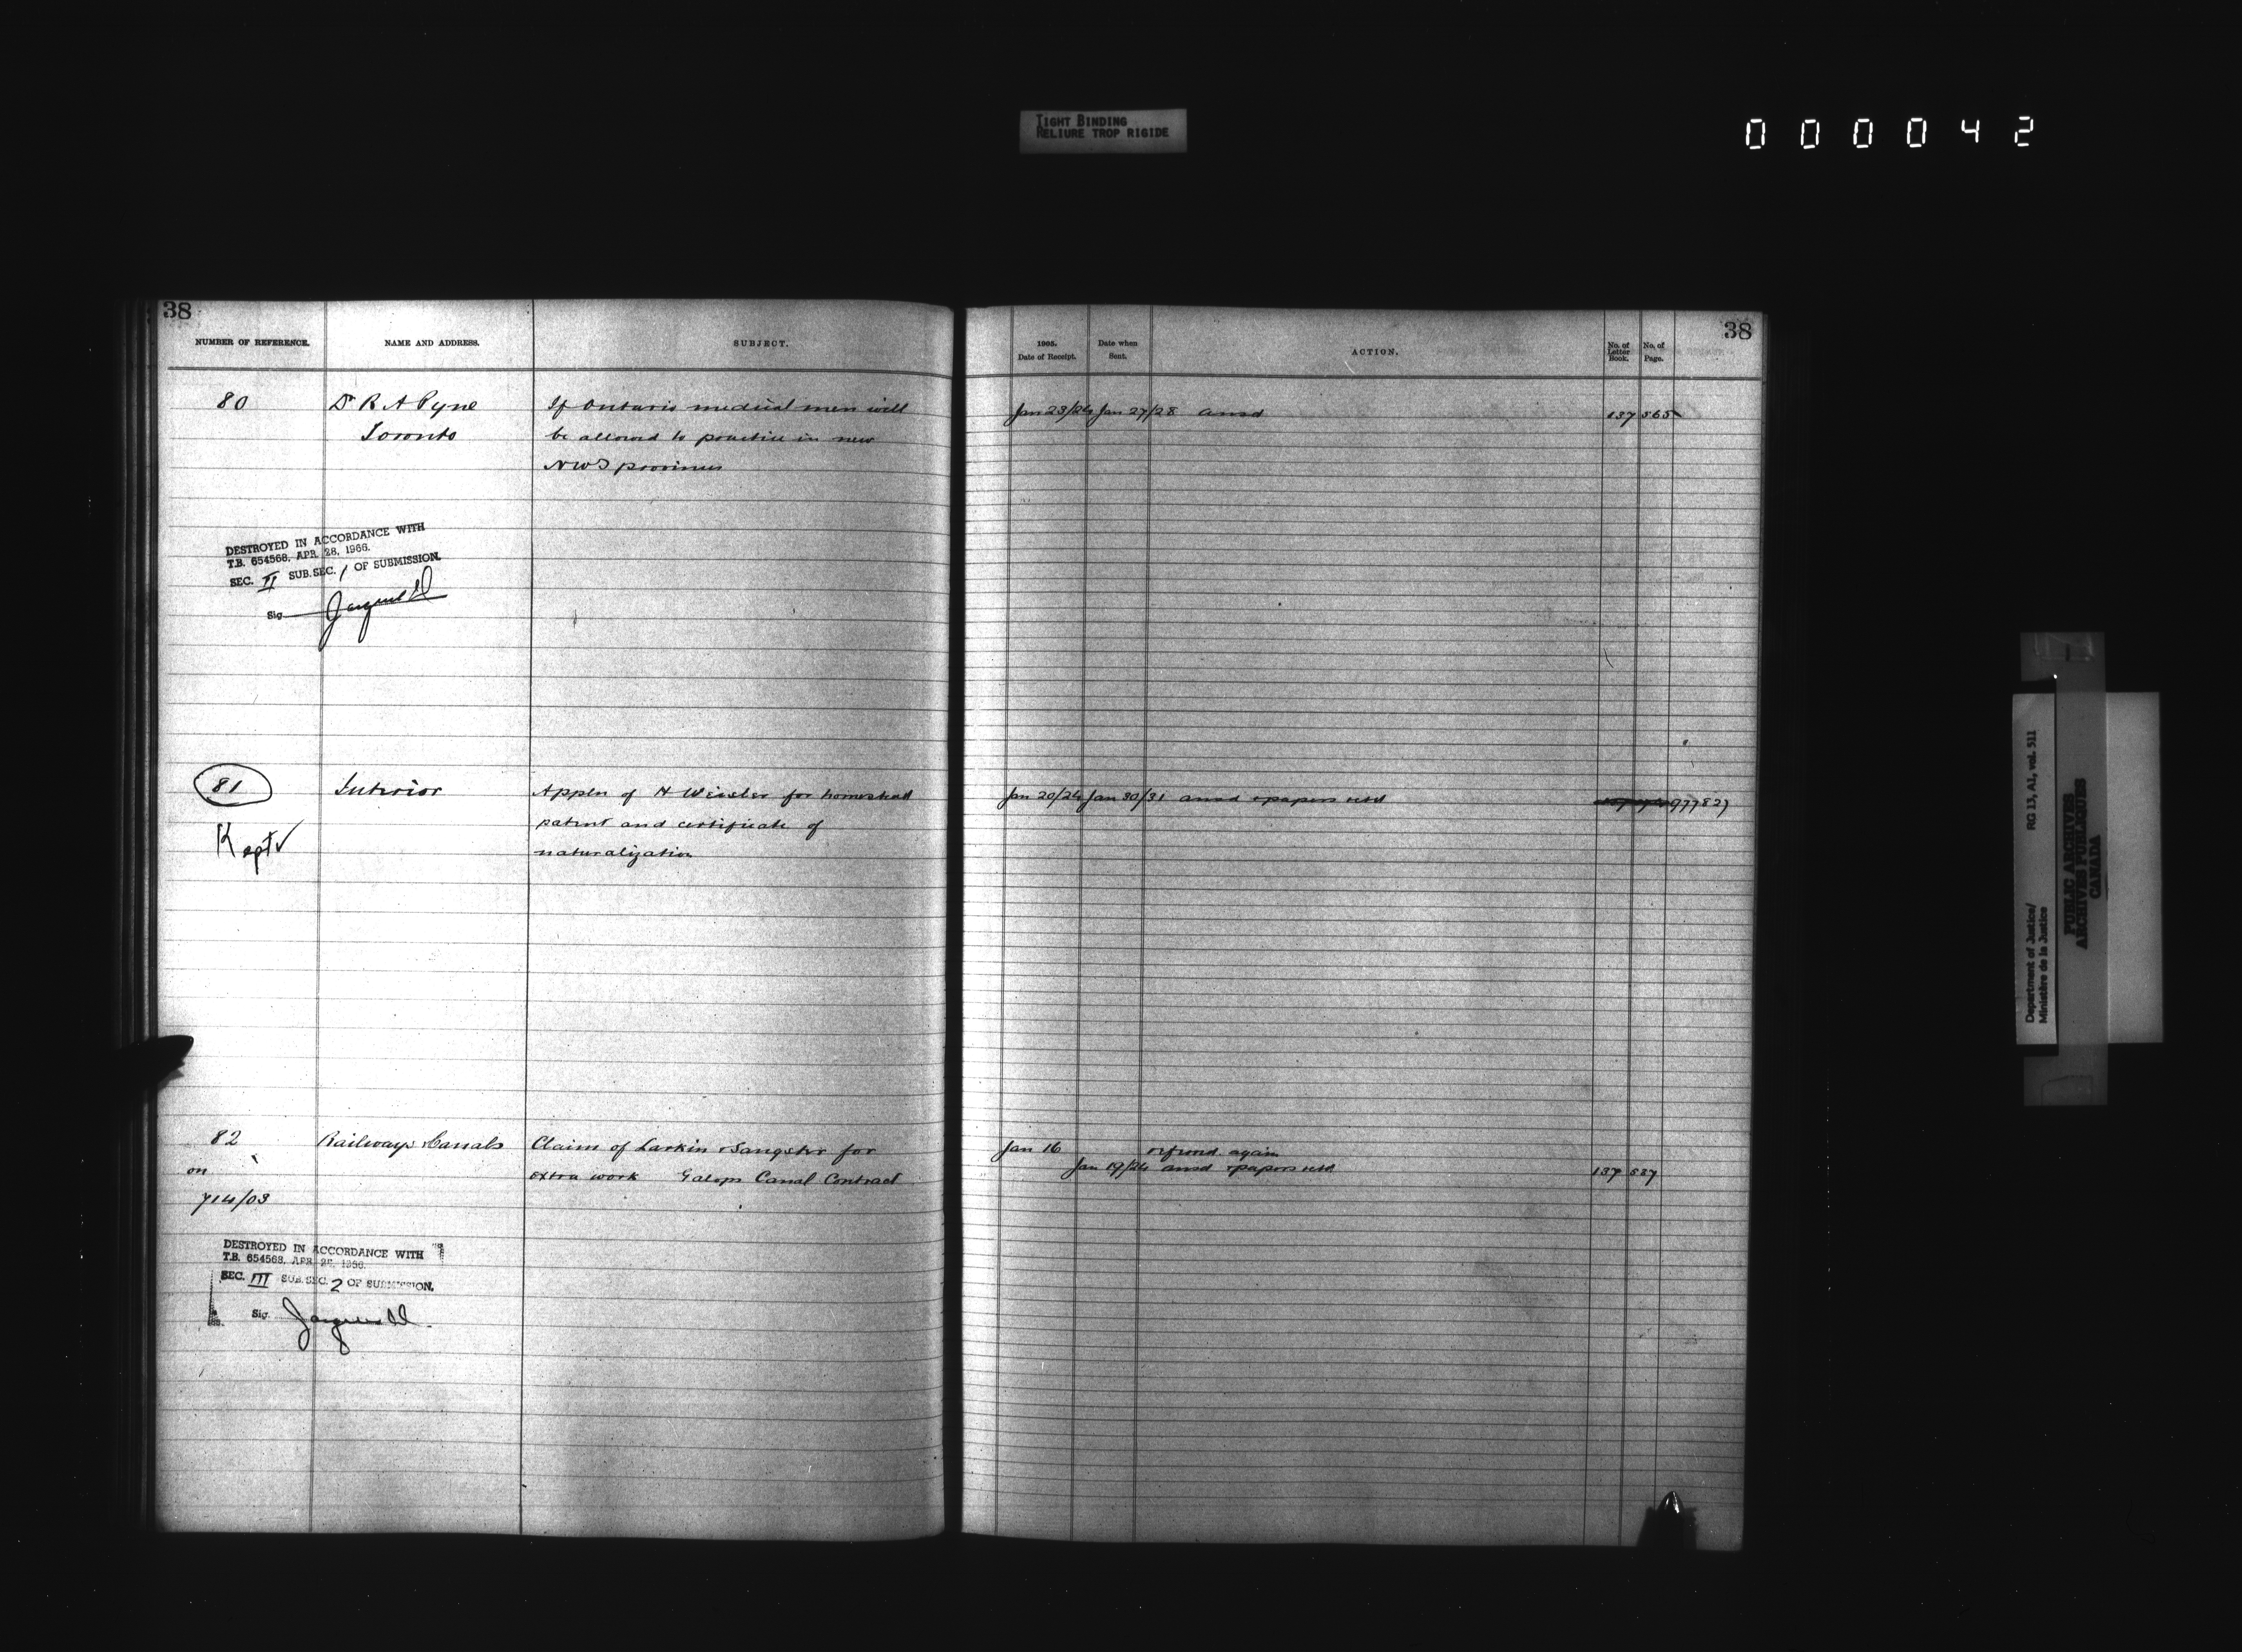 TIGHT BINDING
RELIURE TROP RIGIDE
000042
38
NUMBER OF REFERENCE.
NAME AND ADDRESS.
SUBJECT.
80
Dr R A Pyne
Toronto
If Ontario medical men will
be allowed to practice in new
NWT provinces
DESTROYED IN ACCORDANCE WITH
T.B. 654568, APR. 28, 1966.
SEC. II SUB.SEC. 1 OF SUBMISSION.
Sig.
81
Kept ✓
Interior
Applcn of H Weisler for homestead
patent and certificate of
naturalization
82
on
714/03
Railways & Canals
Claim of Larkin & Sangster for
extra work Galops Canal Contract
DESTROYED IN ACCORDANCE WITH
T.B. 654568, APR. 28, 1966.
SEC. III SUB.SEC. 2 OF SUBMISSION.
Sig.
38
1905.
Date of Receipt.
Date when
Sent.
ACTION.
No. of
Letter
Book.
No. of
Page.
Jan 23/24 Jan 27/28 ansd 137 565
Jan 20/24 Jan 30/31 ansd & papers retd 977827
Jan 16 refined again
Jan 19/24 ansd & papers retd 137 537
Department of Justice/
Ministère de la Justice
RG 13, A1, vol. 511
PUBLIC ARCHIVES
ARCHIVES PUBLIQUES
CANADA